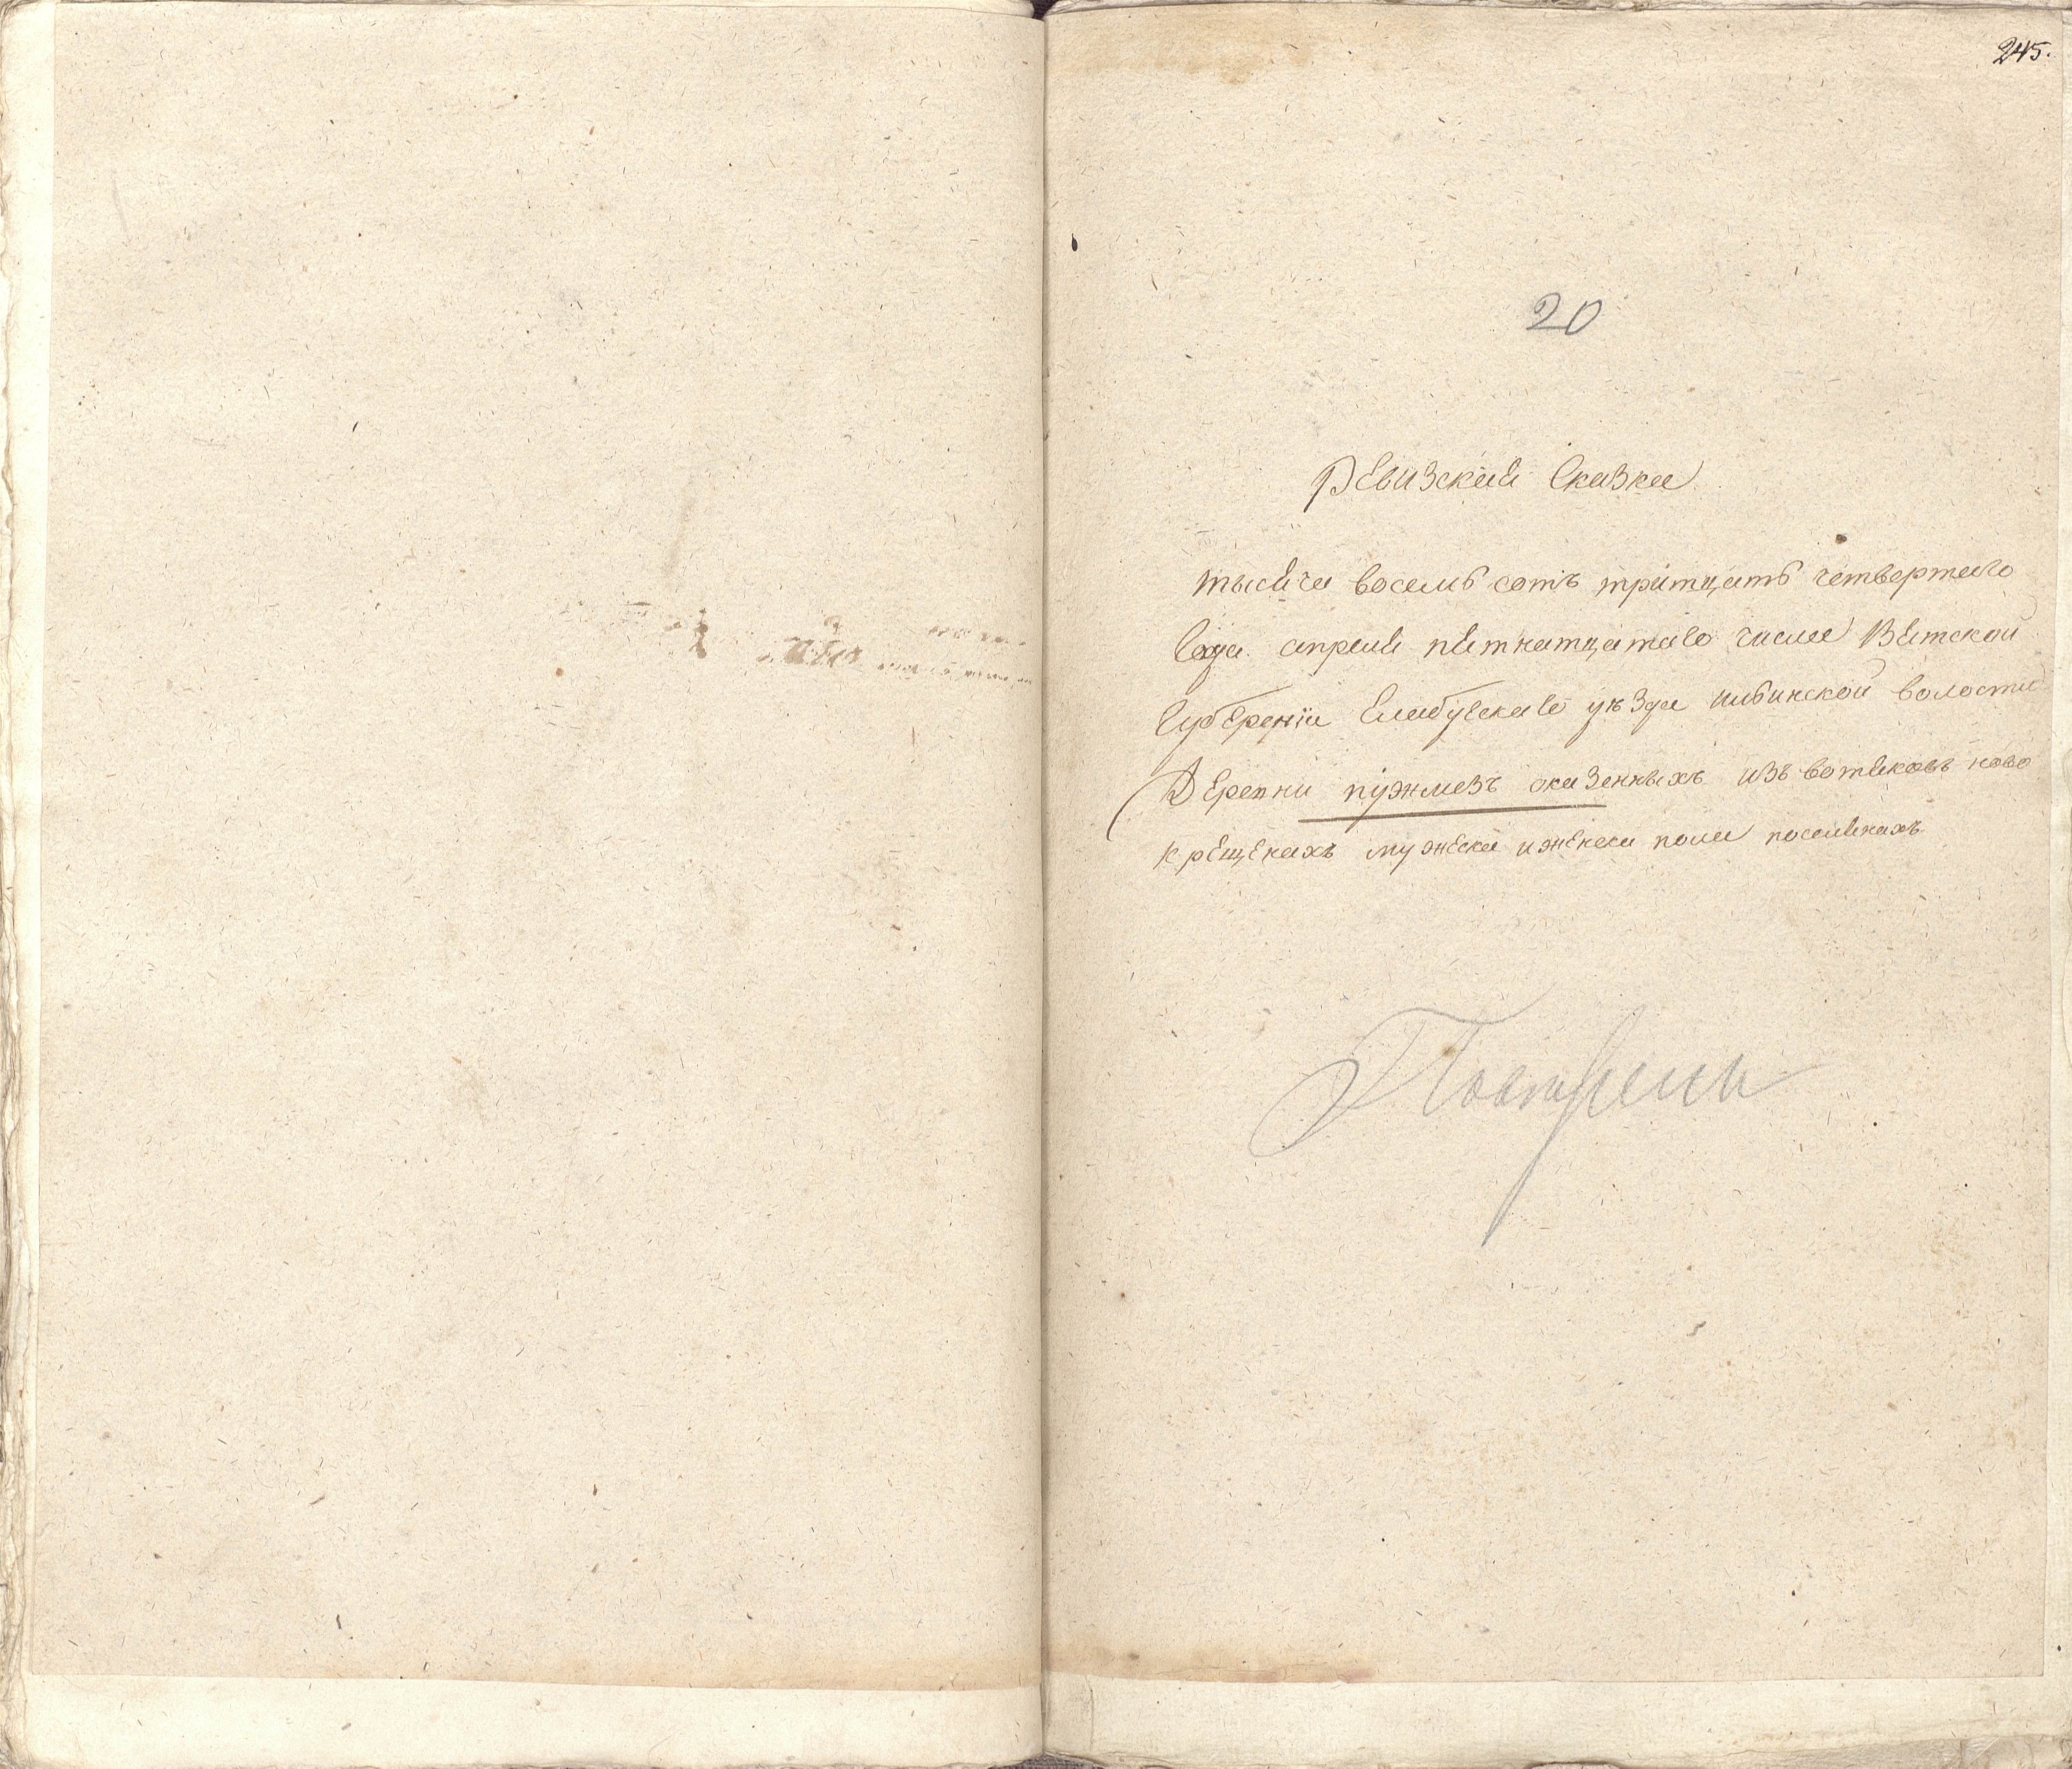 245.
20
Ревизская Сказка
тысяча восемь сотъ тритцать четвертаго
Года апреля пятнатцатаго числа Вятской
Губернiи Елабускаго уѣзда илбинской волости
Деревни пужмезъ оказенныхъ изъ вотяковъ ново
крещенахъ мужеска иженска пола поселянахъ